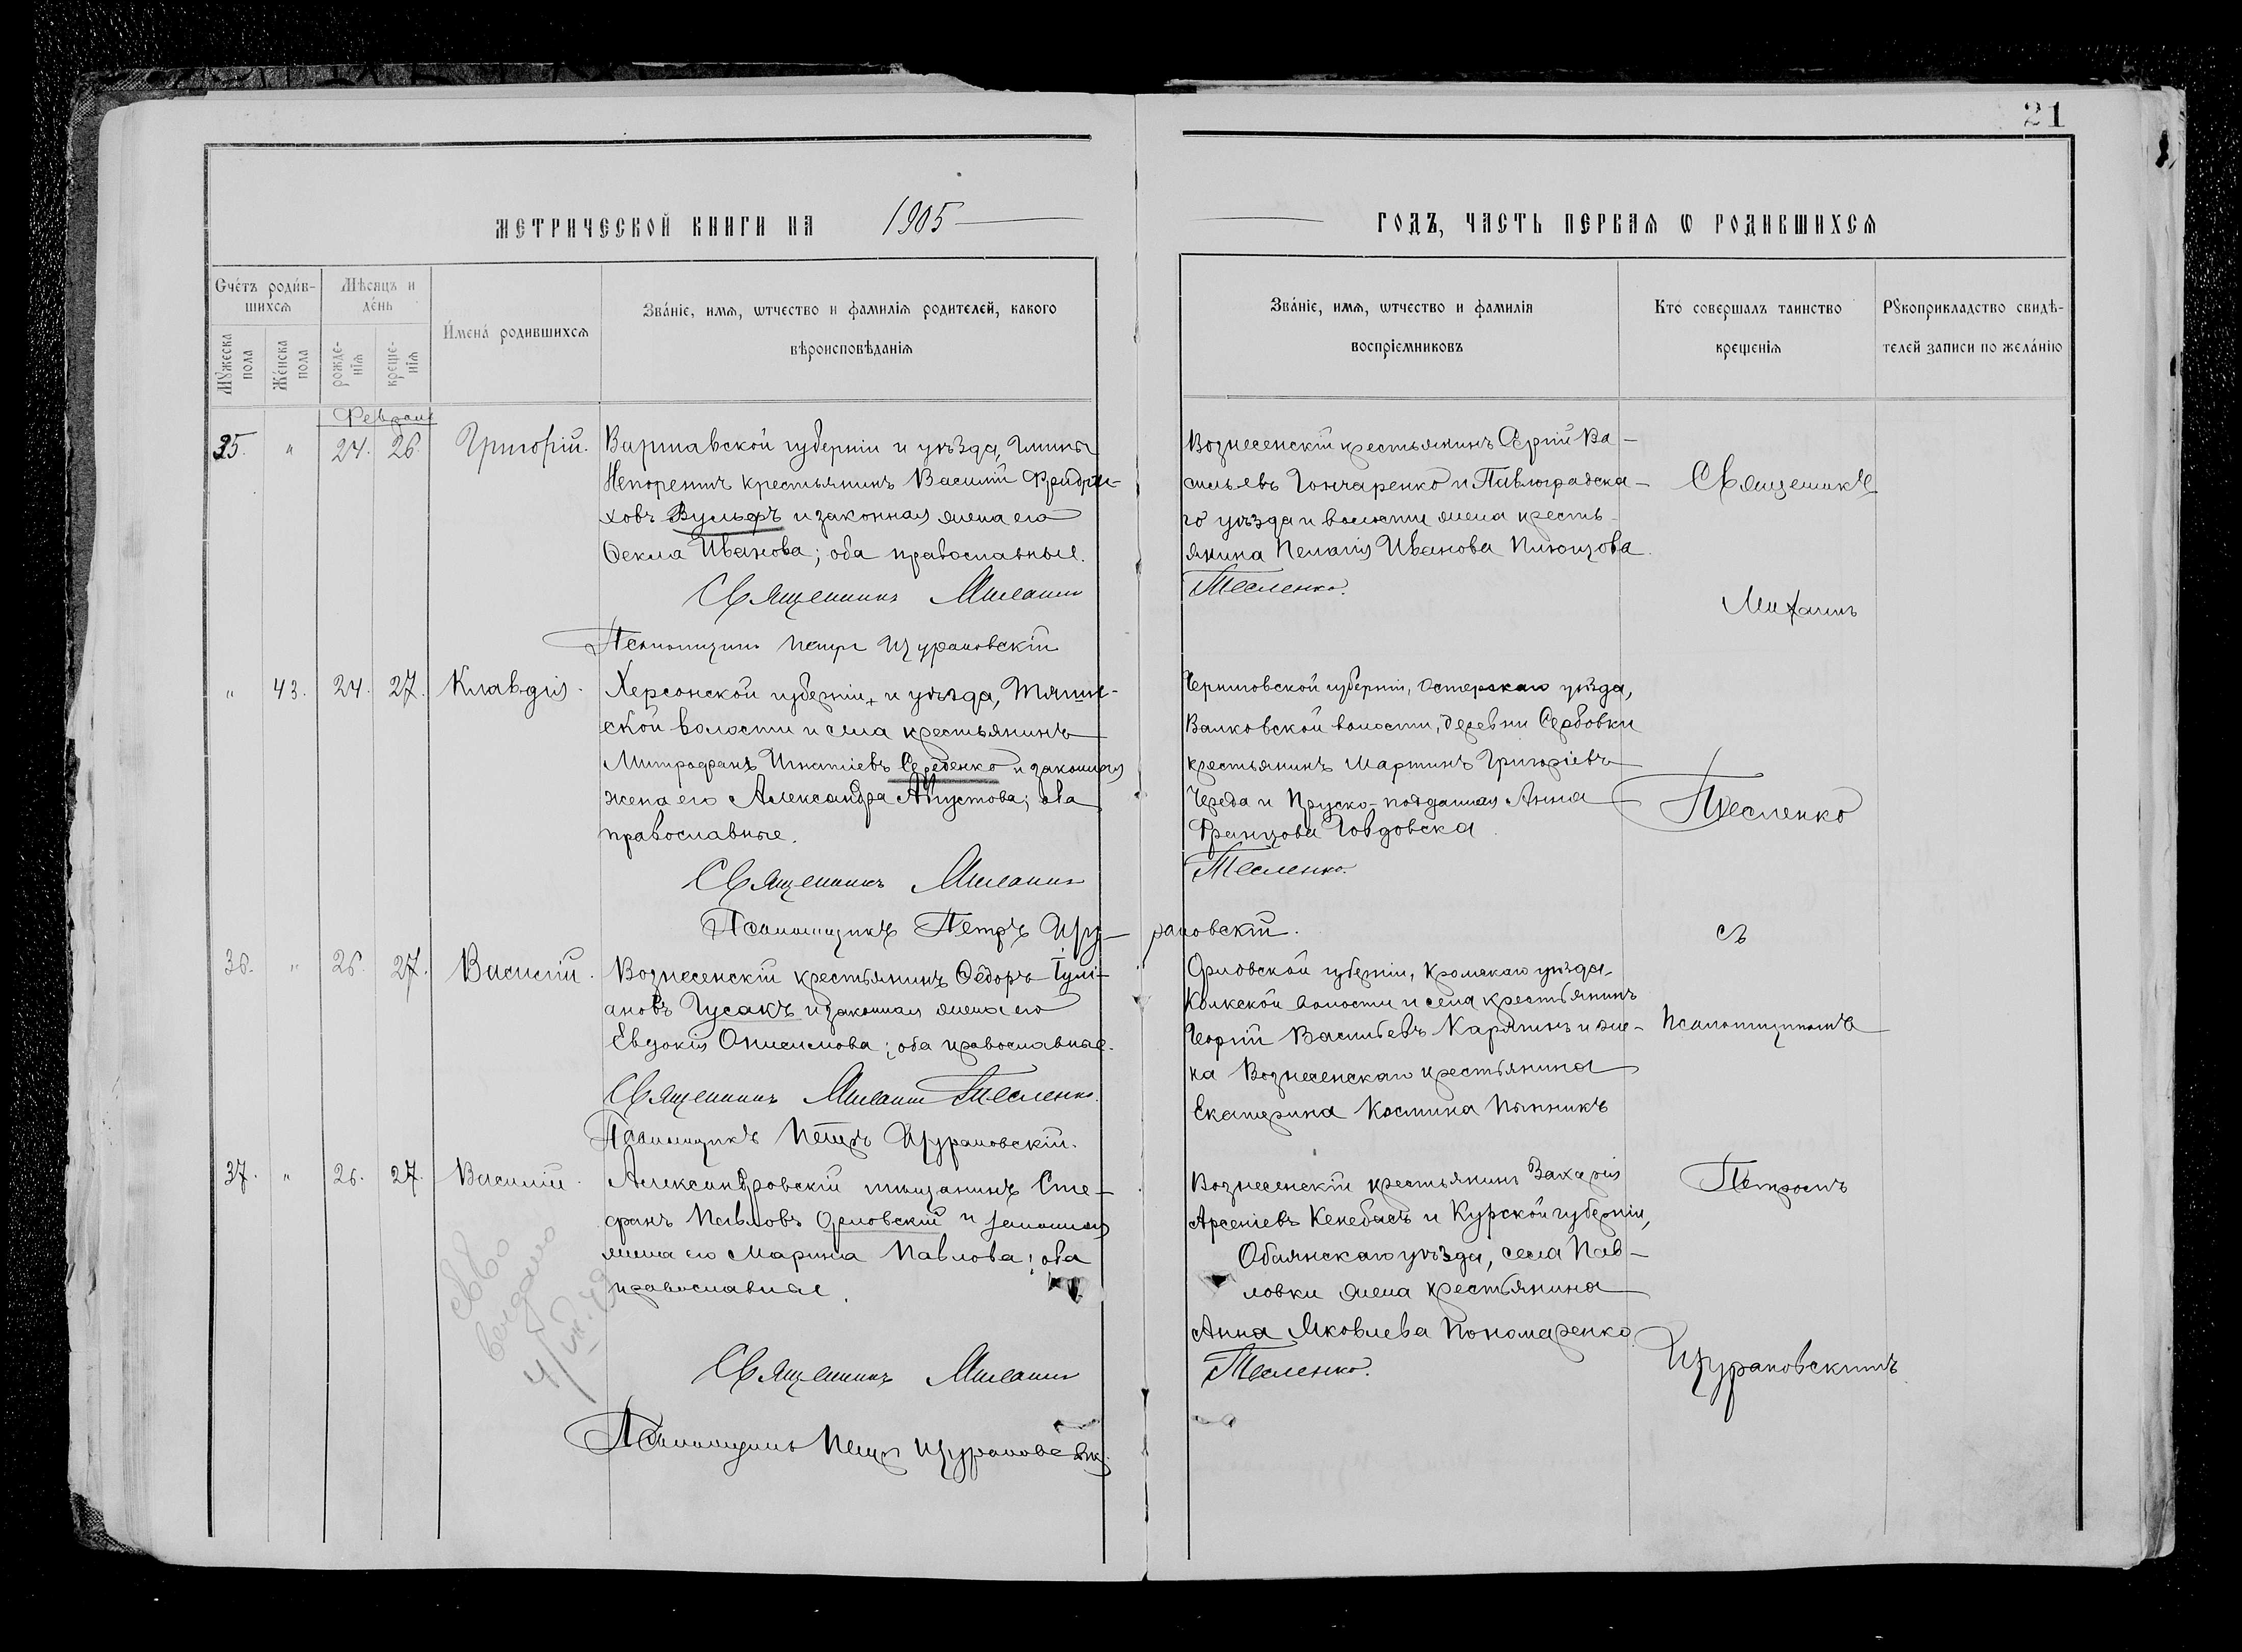 21
МЕТРИЧЕСКОЙ КНИГИ НА 1905
ГОДЪ, ЧАСТЬ ПЕРВАЯ Ѡ РОДИВШИХСЯ
Счéтъ роди́в-
шихсѧ
Мѣсяцъ и
дéнь
Мꙋжеска
пола
Жéнска
пола
рожде-
нія
креще-
нія
И́мена́ родившихсѧ
Зва́ніе, имѧ, ѡтчество и фамилія родителей, какого
вѣроисповѣданія
Зва́ніе, имѧ, ѡтчество и фамилія
воспріемниковъ
Кто́ совершалъ таинство
крещенія
Рꙋкоприкладство свидѣ-
телей записи по жела́нію
Февраль
35. " 24. 26. Григорій.
Варшавской губерніи и уѣзда, Гмины
Непорентъ крестьянинъ Василій Фридри-
ховъ Вульфъ и законная жена его
Ѳекла Иванова; оба православные.
Священникъ Михаилъ
Псаломщикъ Петръ Щурановскій
Вознесенскій крестьянинъ Сергій Ва-
сильевъ Гончаренко и Павлоградска-
го уѣзда и волости жена кресть-
янина Пелагія Иванова
Тесленко.
" 43. 24. 27. Клавдія.
Херсонской губерніи и уѣзда,
ской волости и села крестьянинъ
Митрофанъ Игнатіевъ Середенко и законная
жена его Александра Августова; оба
православные.
Священникъ Михаилъ
Псаломщикъ Петръ Щу-рановскій.
Черниговской губерніи, Остерскаго уѣзда,
волости, деревни Сербовки
крестьянинъ Мартинъ Григоріевъ
Череда и Пруско-подданная Анна
Францова Говдовска.
Тесленко.
36. " 26. 27. Василій.
Вознесенскій крестьянинъ Ѳедоръ Іулі-
ановъ Гусакъ и законная жена его
Евдокія Онисимова; оба православные.
Священникъ Михаилъ Тесленко.
Псаломщикъ Петръ Щурановскій.
Орловской губерніи, Кромскаго уѣзда,
волости и села крестьянинъ
Георгій Васильевъ Карягинъ и же-
на Вознесенскаго крестьянина
Екатерина Космина
37. " 26. 27. Василій.
Александровскій мѣщанинъ Сте-
фанъ Павловъ Орловскій и законная
жена его Марина Павлова; оба
православные.
Священникъ Михаилъ
Псаломщикъ Петръ Щурановскій.
Вознесенскій крестьянинъ Захарія
Арсеніевъ Кенебасъ и Курской губерніи,
Обоянскаго уѣзда, села Пав-
ловки жена крестьянина
Анна Яковлева Пономаренко.
Тесленко.
Священникъ
Михаилъ
Тесленко
съ
Псаломщикомъ
Петромъ
Щурановскимъ